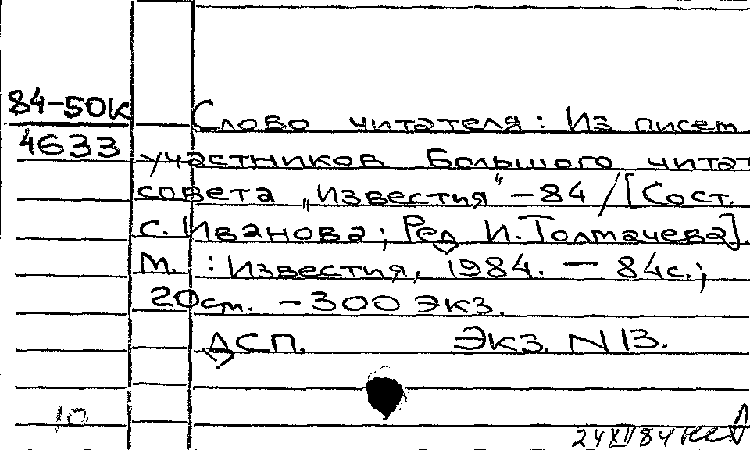 84-50к
4633
Слово читателя: Из писем
участников Большого читат
совета „Известия“ – 84 / [Сост.
С. Иванова; Ред И. Толмачева].
М. : Известия, 1984. – 84с.;
20 см. – 300 экз.
ДСП. Экз. N 13.
10
24 XII 84